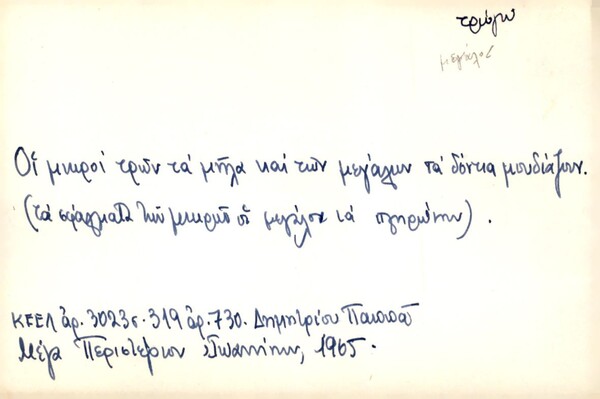 τρώγω
μεγάλος
Οἱ μικροί τρῶν τά μῆλα καί τῶν μεγάλων τά δόντια μουδιάζουν.
(τά σφάλματα τῶν μικρῶν οἱ μεγάλοι τά πληρώνουν).
ΚΕΕΛ ἀρ. 3023 σ. 319 ἀρ. 730. Δημητρίου Παππᾶ
Μέγα Περιστέριον Ἰωαννίνων, 1965.